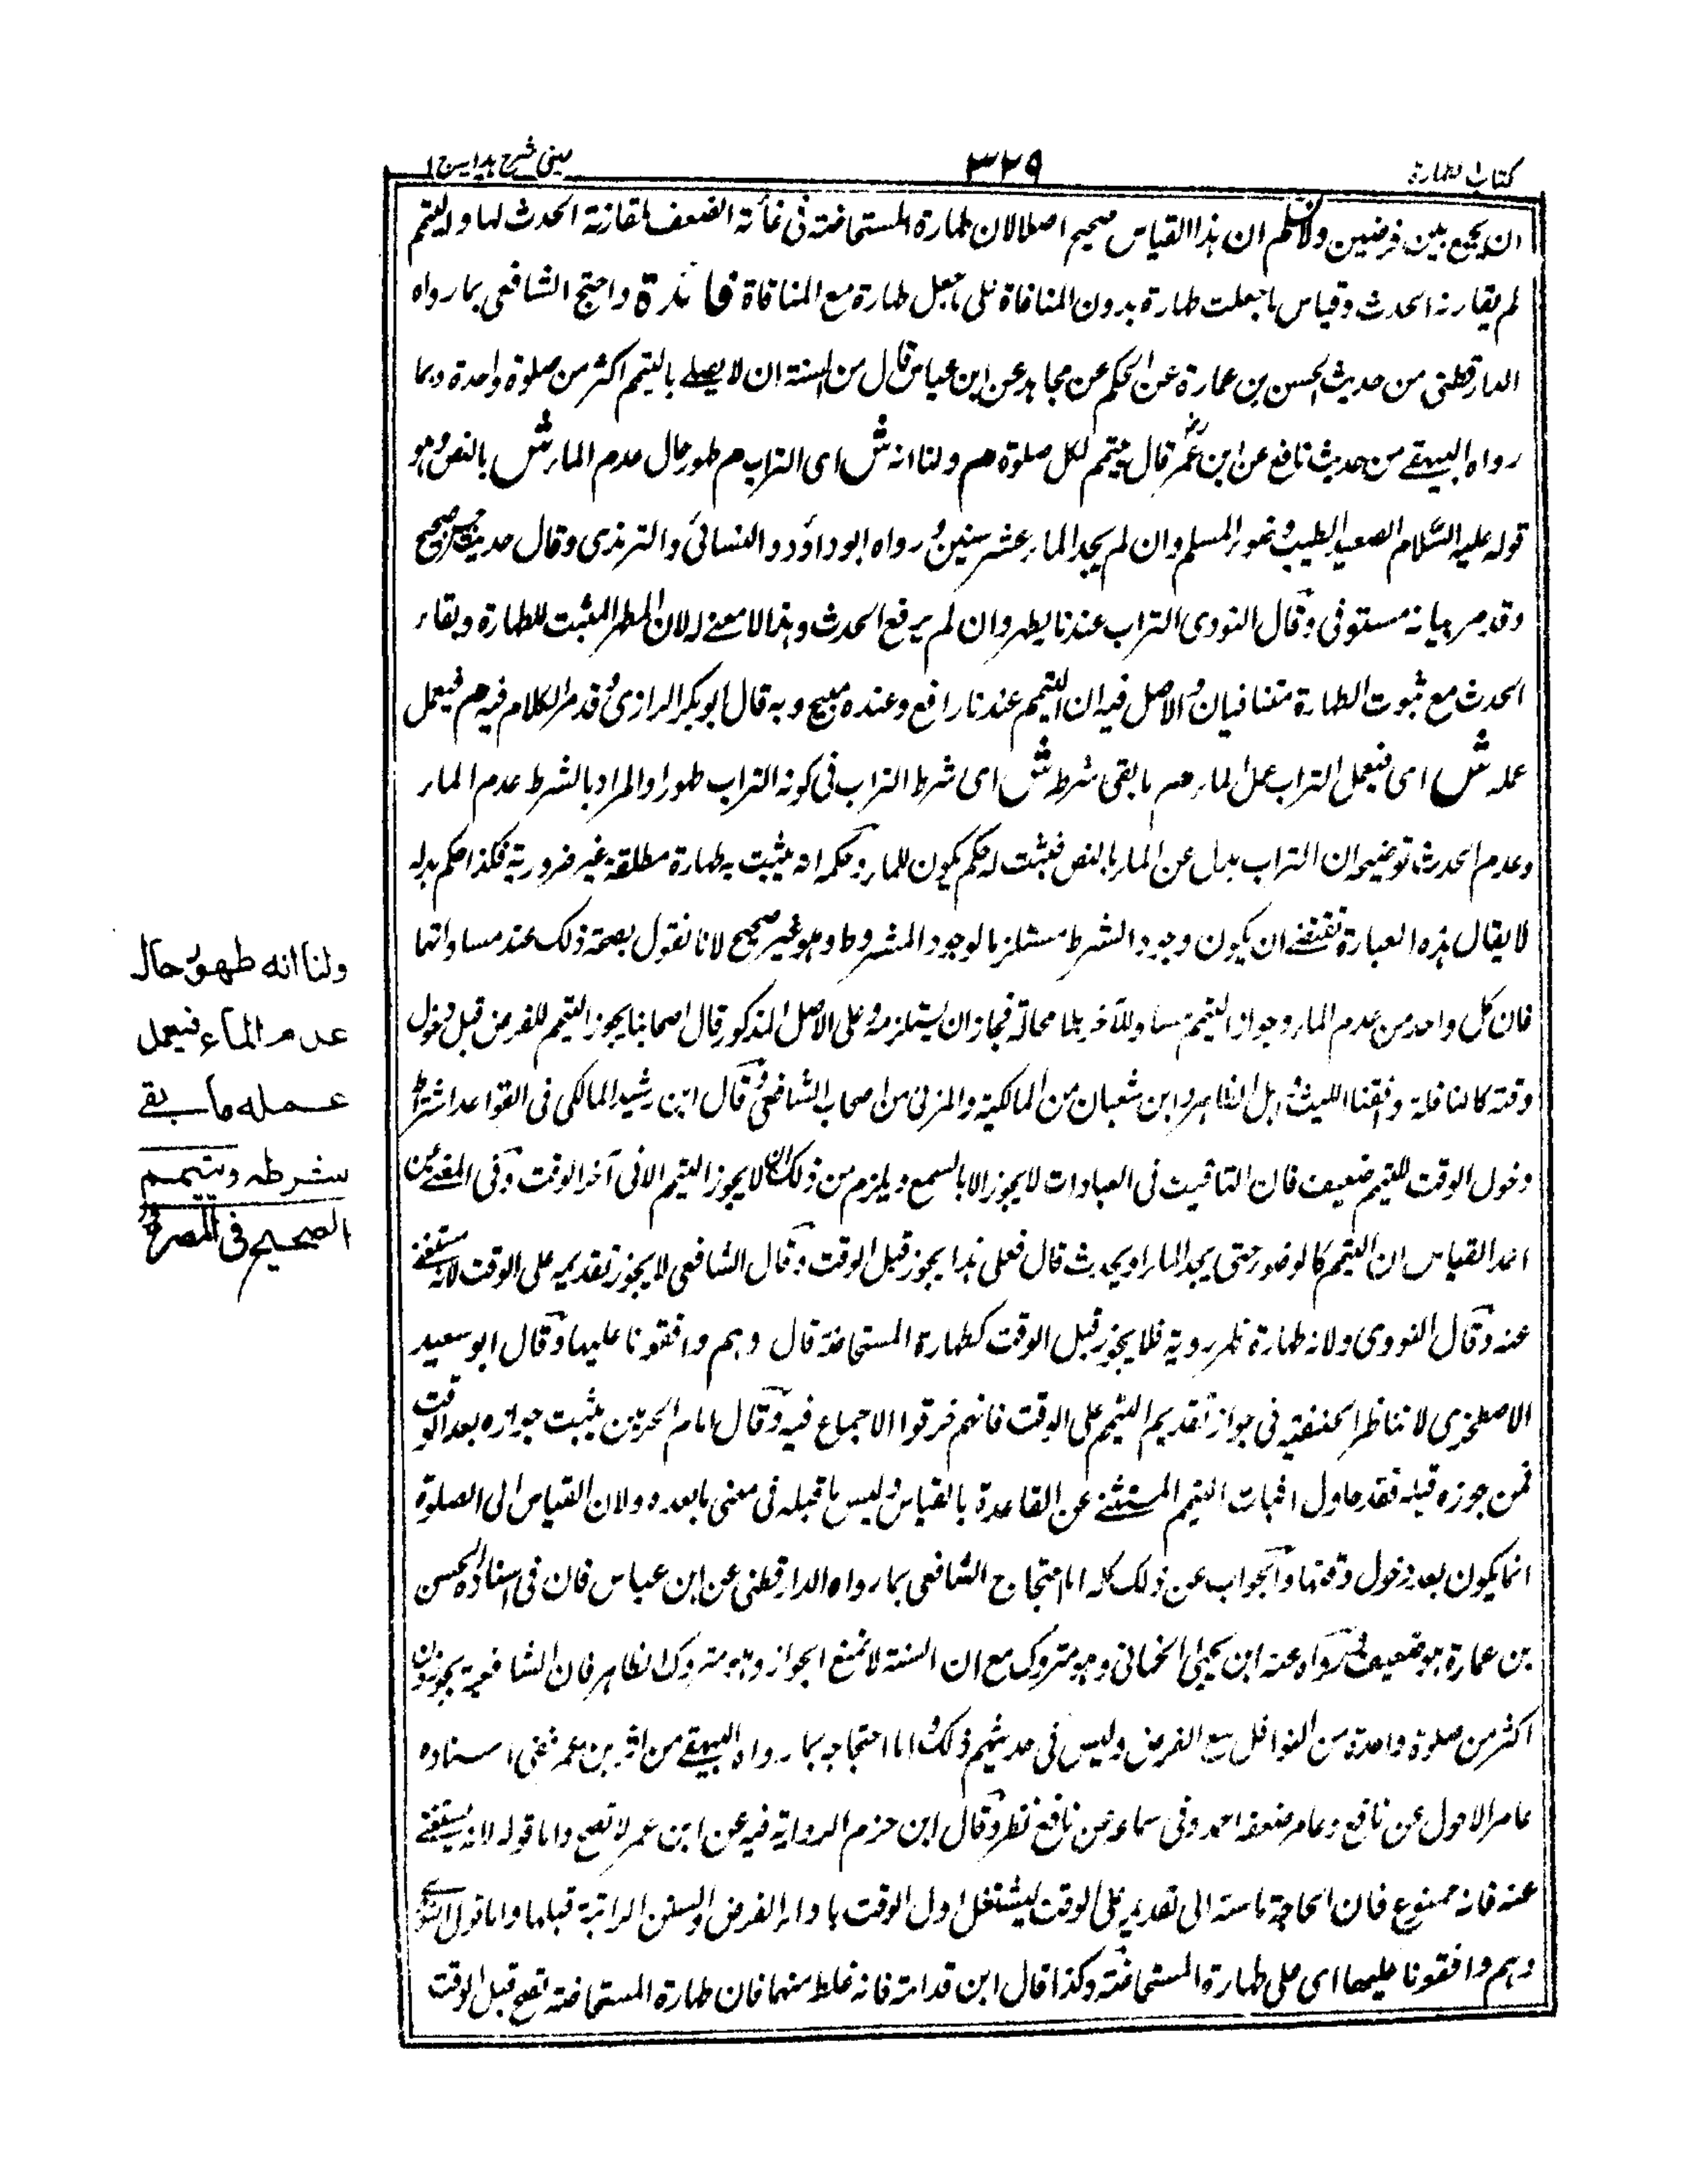 كتاب الطهارة
٣٢٩
عيني شرح هدايه ج ١
ان يجمع بين فرضين ولا نسلم ان هذا القياس صحيح اصلا لان طهارة المستحاضة في غاية الضعف لمقارنة الحدث لها والتيمم
لم يقارنه الحدث وقياس ما جعلت طهارة بدون المنافاة على ما جعل طهارة مع المنافاة فائدة واحتج الشافعي بما رواه
الدارقطني من حديث الحسن بن عمارة عن الحكم عن مجاهد عن ابن عباس قال من السنة ان لا يصلي بالتيمم اكثر من صلوة واحدة وبما
رواه البيهقي من حديث نافع عن ابن عمر قال يتيمم لكل صلوة م ولنا انه ش اى التراب م طهور حال عدم الماء ش بالنص وهو
قوله عليه السلام الصعيد الطيب وضوء المسلم وان لم يجد الماء عشر سنين رواه ابو داؤد والنسائي والترمذى وقال حديث حسن صحيح
وقد مر بيانه مستوفى وقال النووى التراب عندنا يطهر وان لم يرفع الحدث وهذا لا معنى له لان المطهر المثبت للطهارة وبقاء
الحدث مع ثبوت الطهارة متنافيان والاصل فيه ان التيمم عندنا رافع وعنده مبيح وبه قال ابو بكر الرازى وقد مر الكلام فيه م فيعمل
عمله ش اى فيعمل التراب عمل الماء م ما بقى شرطه ش اى شرط التراب في كونه التراب طهورا والمراد بالشرط عدم الماء
وعدم الحدث توضيحه ان التراب بدل عن الماء بالنص فيثبت له حكم يكون للماء وحكمه انه يثبت به طهارة مطلقة غير ضرورية فكذا حكم بدله
لا يقال هذه العبارة تقتضي ان يكون وجود الشرط مستلزما لوجود المشروط وهو غير صحيح لانا نقول بصحة ذلك عند مساواتهما
فان كل واحد من عدم الماء وجواز التيمم مساو للآخر بلا محالة فجاز ان يستلزمه وعلى الاصل المذكور قال اصحابنا يجوز التيمم للفرض قبل دخول
وقته كالنافلة وافقنا الليث واهل الظاهر وابن شعبان من المالكية والمزني من اصحاب الشافعي وقال ابن رشيد المالكي في القواعد اشتراط
دخول الوقت للتيمم ضعيف فان التاقيت في العبادات لا يجوز الا بالسمع ويلزم من ذلك ان لا يجوز التيمم الا في آخر الوقت وفي المغني عن
احمد القياس ان التيمم كالوضوء حتى يجد الماء او يحدث قال فعلى هذا يجوز قبل الوقت وقال الشافعي لا يجوز تقديمه على الوقت لانه مستغنى
عنه وقال النووى ولانه طهارة ضرورية فلا يجوز قبل الوقت كطهارة المستحاضة قال وهم وافقونا عليها وقال ابو سعيد
الاصطخرى لا نناظر الحنفية في جواز تقديم التيمم على الوقت فانهم خرقوا الاجماع فيه وقال امام الحرمين يثبت جوازه بعد الوقت
فمن جوزه قبله فقد حاول اثبات التيمم المستثنى عن القاعدة بالقياس وليس ما قبله في معنى ما بعده ولان القياس الى الصلوة
انما يكون بعد دخول وقتها والجواب عن ذلك كله اما احتجاج الشافعي بما رواه الدارقطني عن ابن عباس فان في اسناده الحسن
بن عمارة وهو ضعيف رواه عنه ابن يحيى الحماني وهو متروك مع ان السنة لا تمنع الجواز وهو متروك الظاهر فان الشافعية يجوزون
اكثر من صلوة واحدة من النوافل مع الفرض وليس في حديثهم ذلك واما احتجاجه بما رواه البيهقي من اثر بن عمر ففي اسناده
عامر الاحول عن نافع وعامر ضعفه احمد وفي سماعه من نافع نظر وقال ابن حزم الرواية فيه عن ابن عمر لا تصح واما قوله لانه مستغنى
عنه فانه ممنوع فان الحاجة ماسة الى تقديمه على الوقت ليشتغل اول الوقت باداء الفرض والسنن الراتبة قبلها واما قول النووى
وهم وافقونا عليها اى على طهارة المستحاضة وكذا قال ابن قدامة فانه غلط منهما فان طهارة المستحاضة تصح قبل الوقت
ولنا انه طهور حال
عدم الماء فيعمل
عمله ما بقى
شرطه ويتيمم
الصحيح في المصر